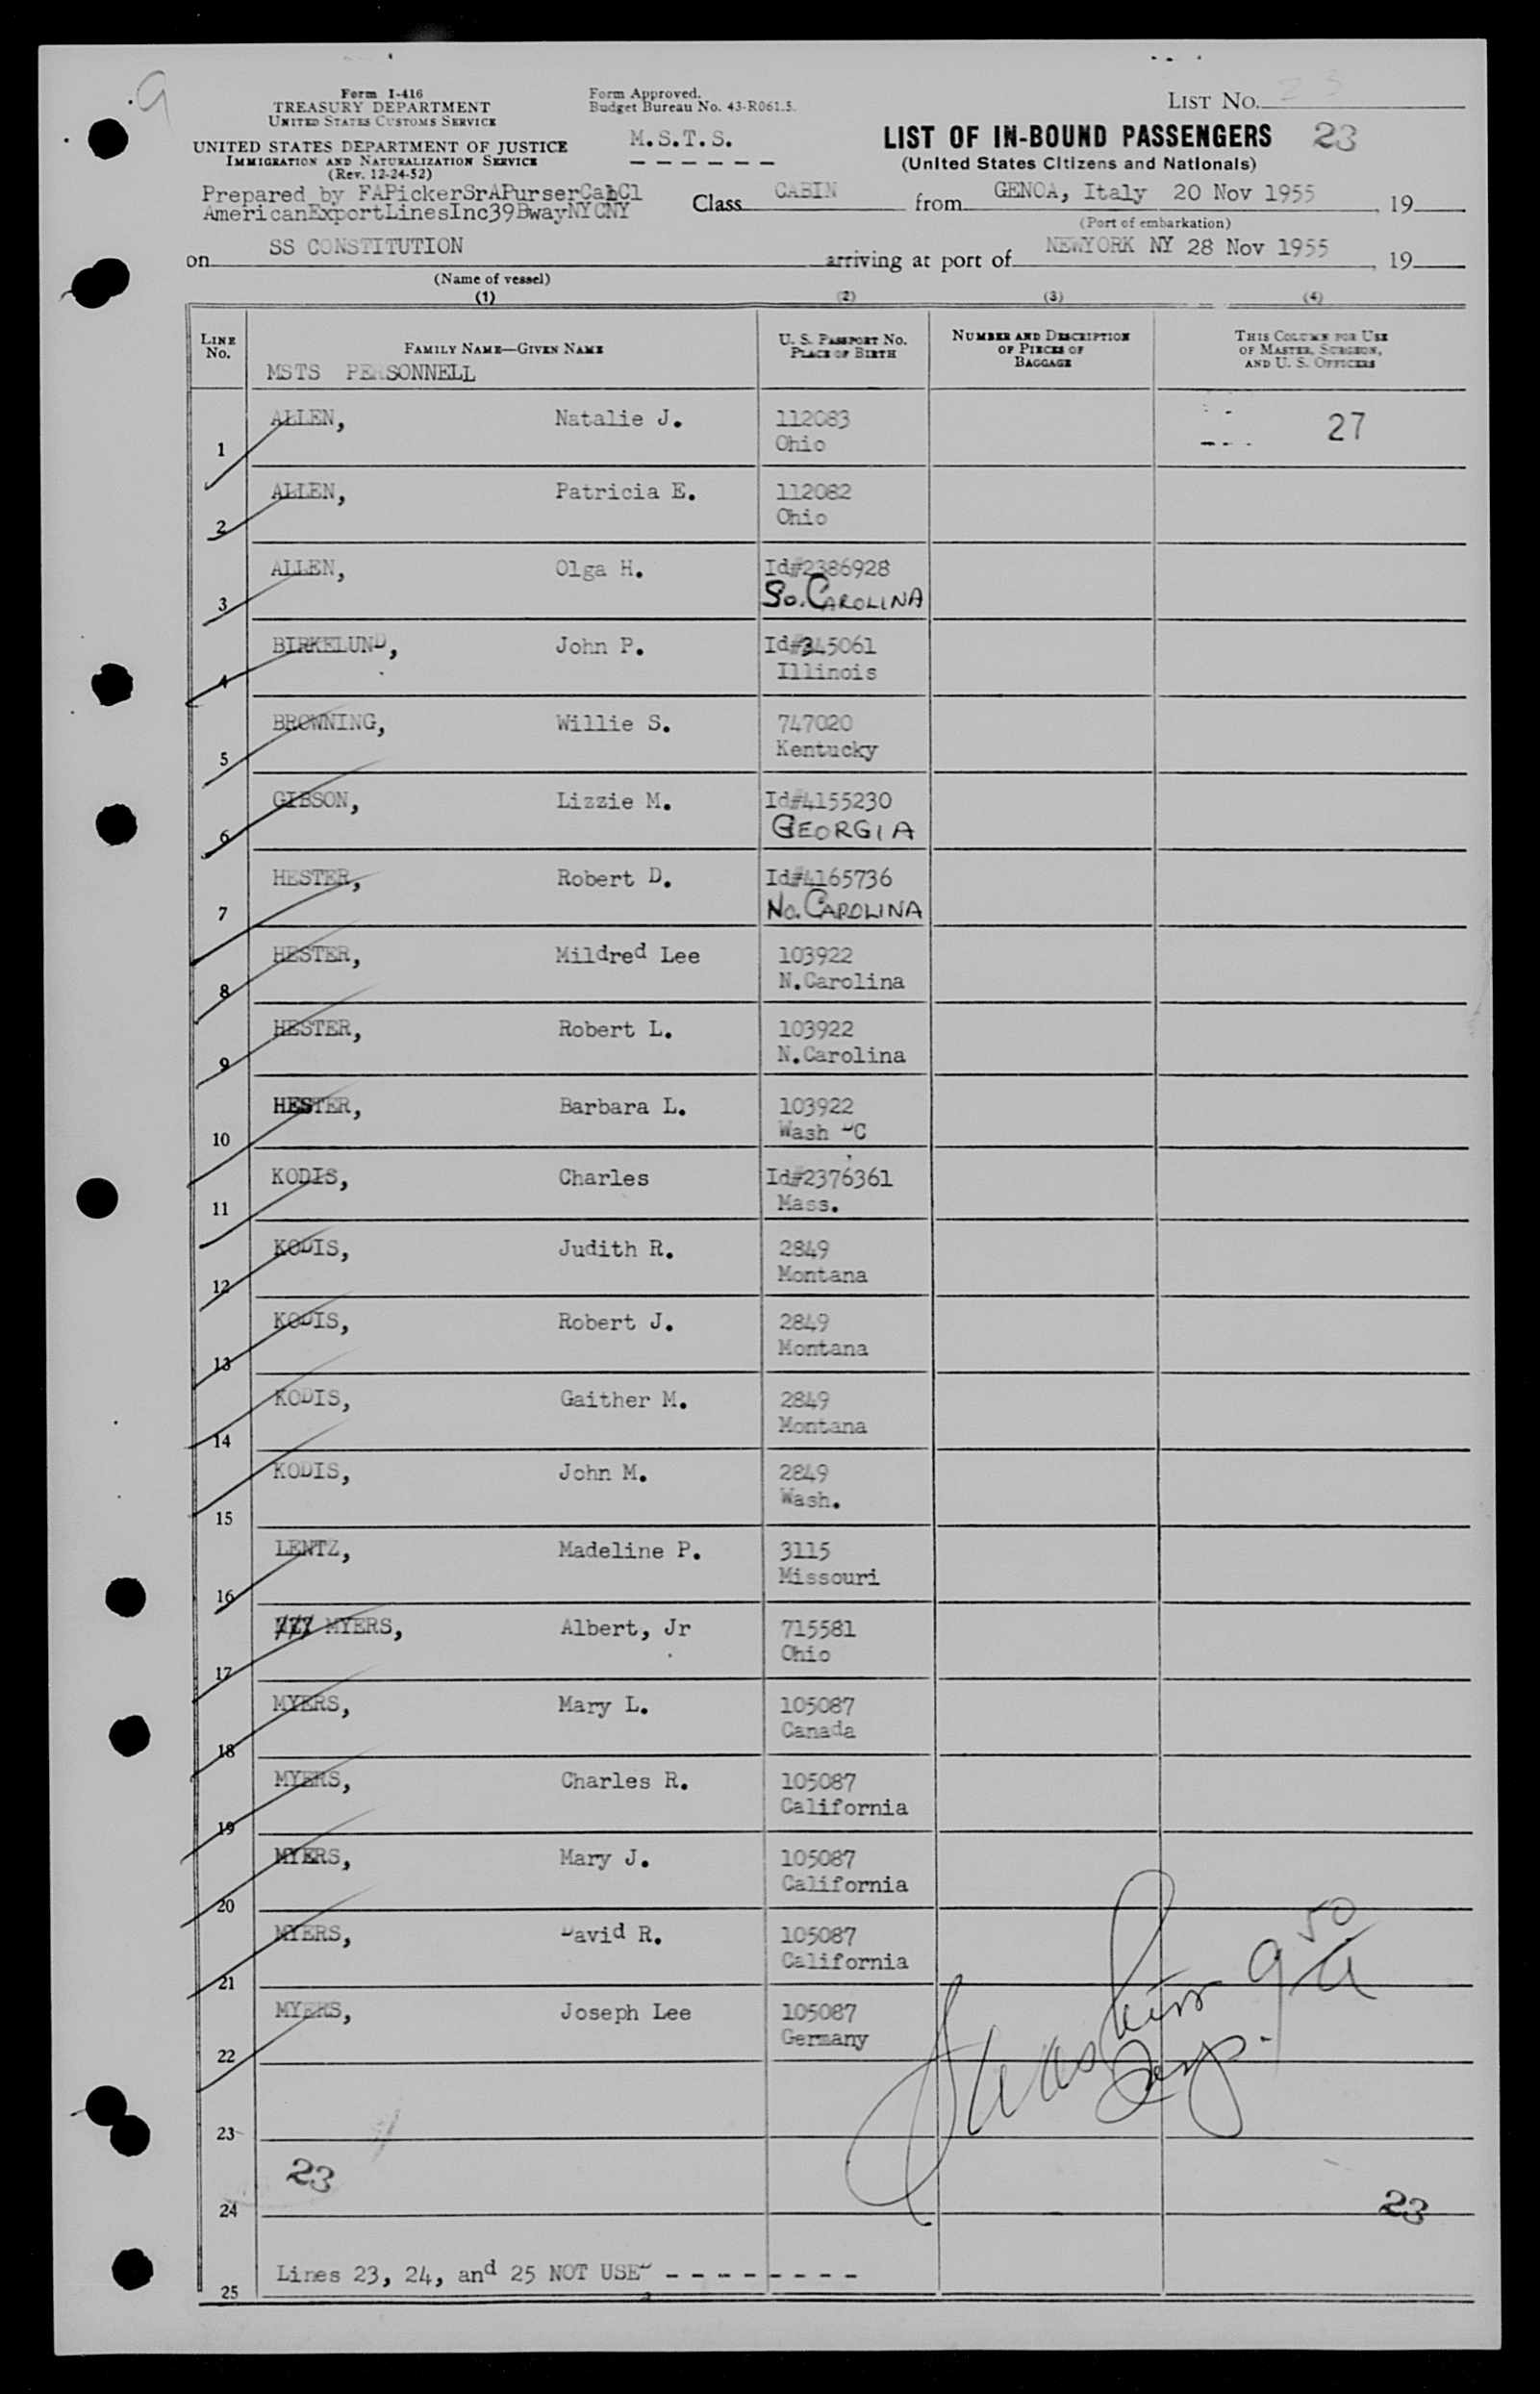 9
Form I-416
TREASURY DEPARTMENT
UNITED STATES CUSTOMS SERVICE
UNITED STATES DEPARTMENT OF JUSTICE
IMMIGRATION AND NATURALIZATION SERVICE
(Rev. 12-24-52)
Form Approved.
Budget Bureau No. 43-R061.5.
M.S.T.S.
LIST NO. 23
LIST OF IN-BOUND PASSENGERS 23
(United States Citizens and Nationals)
Prepared by FAPickerSrAPurserCabCl
AmericanExportLinesInc39BwayNYCNY
Class CABIN from GENOA, Italy 20 Nov 1955, 19
(Port of embarkation)
on SS CONSTITUTION arriving at port of NEWYORK NY 28 Nov 1955, 19
(Name of vessel)
(1) (2) (3) (4)
LINE No. FAMILY NAME—GIVEN NAME U. S. PASSPORT NO. PLACE OF BIRTH NUMBER AND DESCRIPTION OF PIECES OF BAGGAGE THIS COLUMN FOR USE OF MASTER, SURGEON, AND U. S. OFFICERS
MSTS PERSONNELL
1 ALLEN, Natalie J. 112083 27
Ohio
2 ALLEN, Patricia E. 112082
Ohio
3 ALLEN, Olga H. Id#2386928
So. CAROLINA
4 BIRKELUND, John P. Id#345061
Illinois
5 BROWNING, Willie S. 747020
Kentucky
6 GIBSON, Lizzie M. Id#4155230
GEORGIA
7 HESTER, Robert D. Id#4165736
No. CAROLINA
8 HESTER, Mildred Lee 103922
N.Carolina
9 HESTER, Robert L. 103922
N.Carolina
10 HESTER, Barbara L. 103922
Wash DC
11 KODIS, Charles Id#2376361
Mass.
12 KODIS, Judith R. 2849
Montana
13 KODIS, Robert J. 2849
Montana
14 KODIS, Gaither M. 2849
Montana
15 KODIS, John M. 2849
Wash.
16 LENTZ, Madeline P. 3115
Missouri
17 MYERS, Albert, Jr 715581
Ohio
18 MYERS, Mary L. 105087
Canada
19 MYERS, Charles R. 105087
California
20 MYERS, Mary J. 105087
California
21 MYERS, David R. 105087
California
22 MYERS, Joseph Lee 105087
Germany
23
23
24
23
25 Lines 23, 24, and 25 NOT USED - - - - - - - -